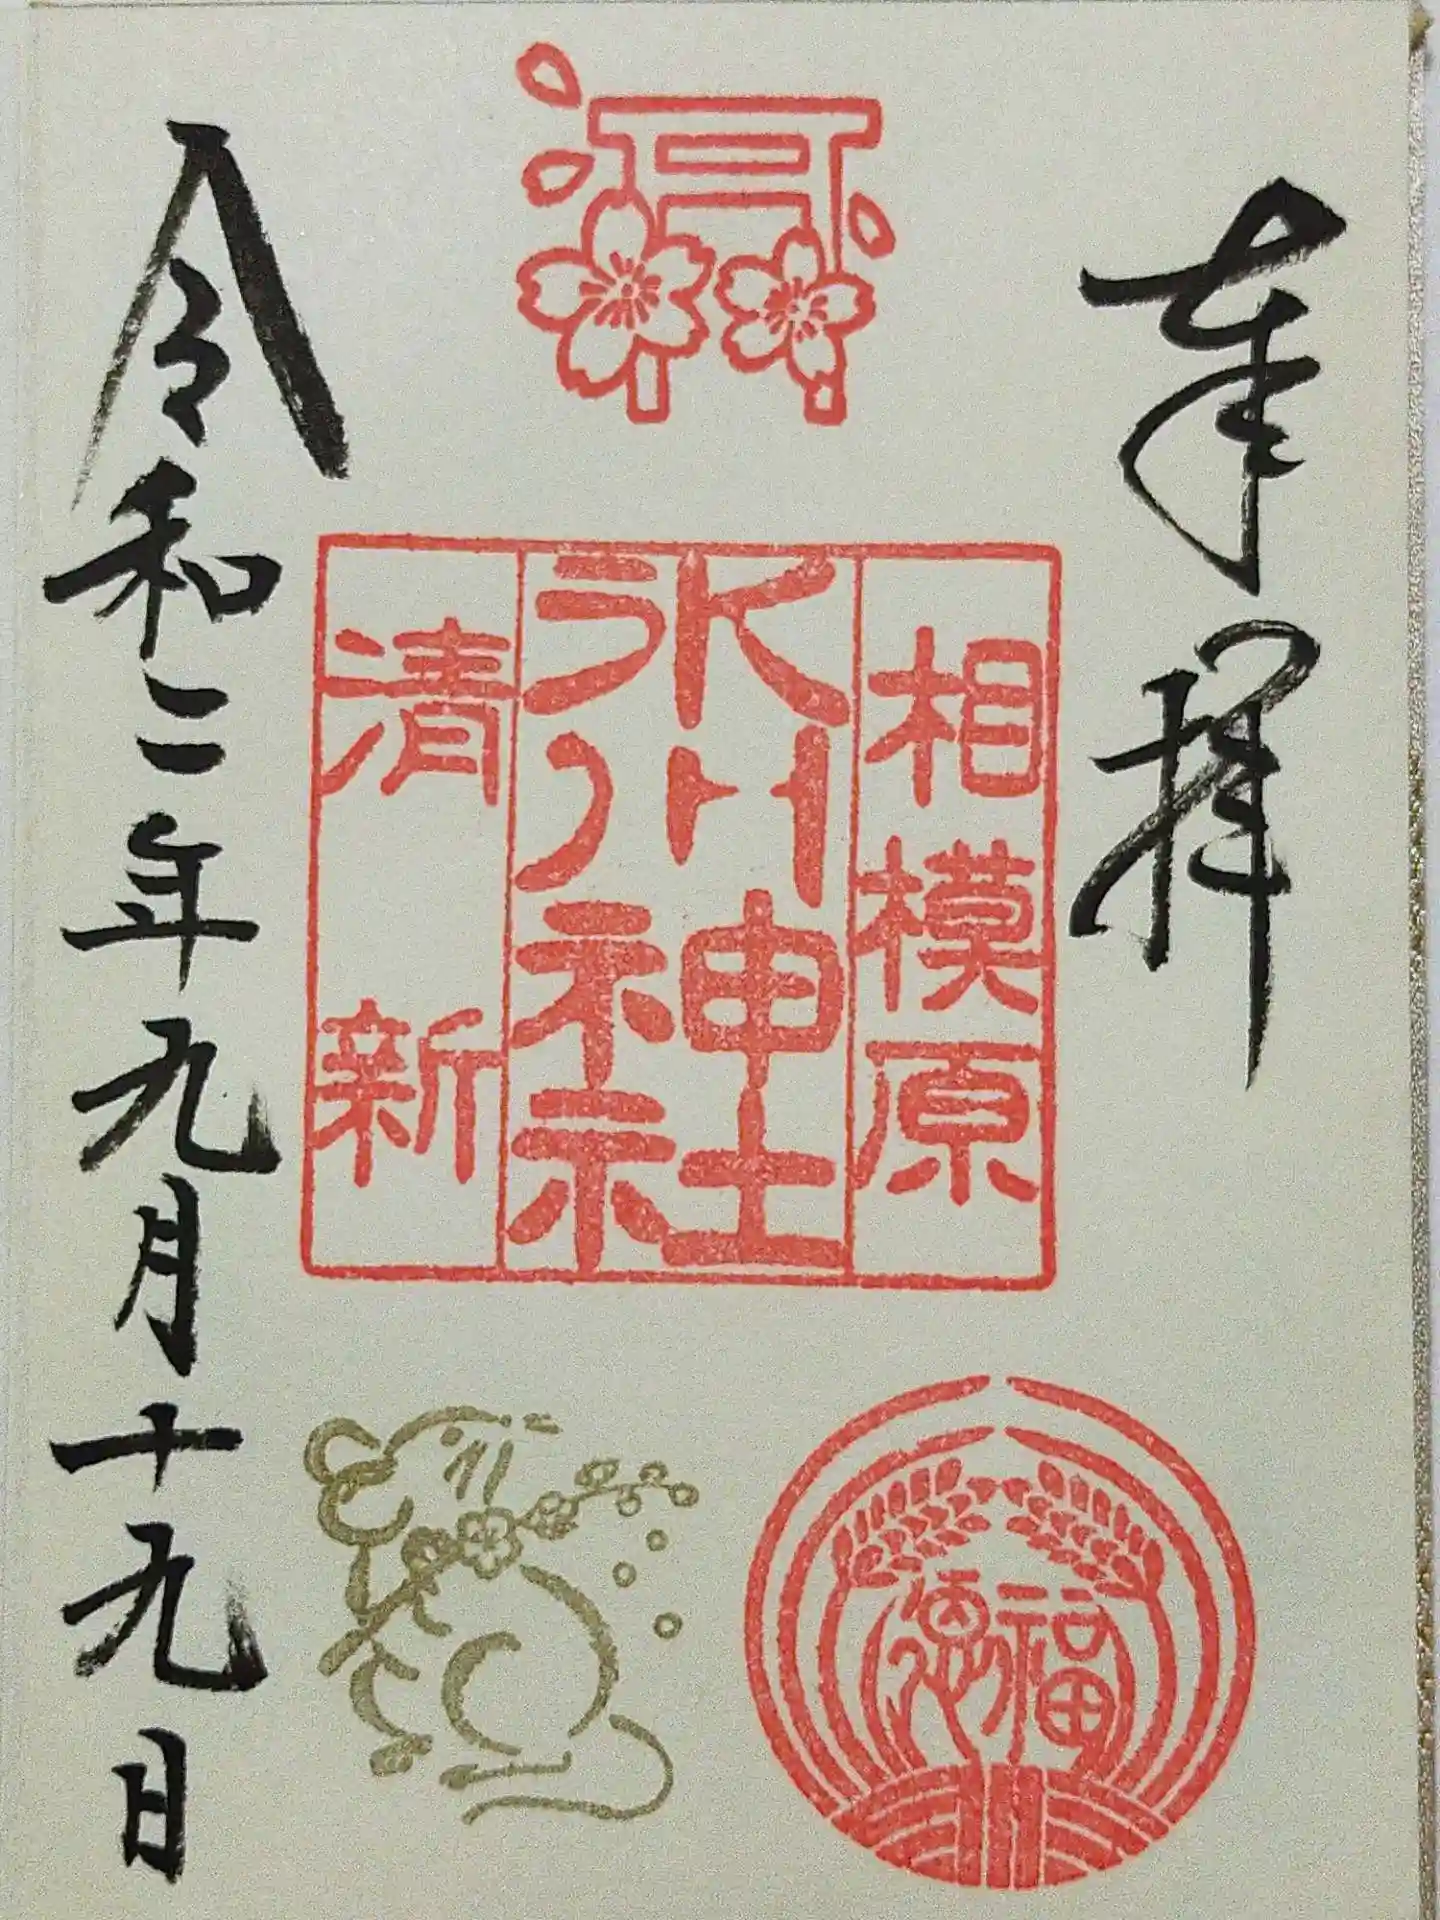 奉拝
相模原
氷川神社
清新
福徳
令和二年九月十九日